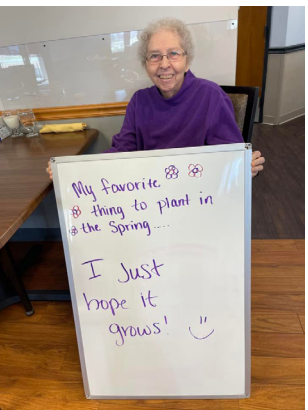 My favorite
thing to plant in
the Spring.....
I Just
hope it
grows!